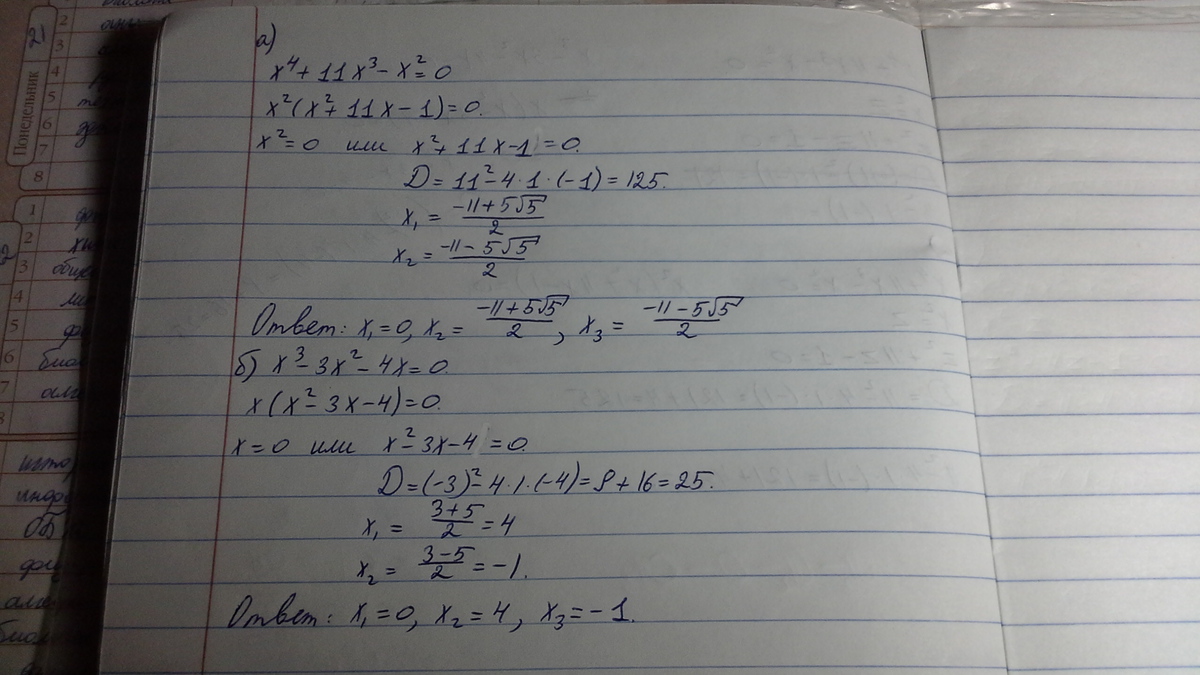 а)
x⁴ + 11x³ − x² = 0
x²(x² + 11x − 1) = 0.
x² = 0 или x² + 11x − 1 = 0.
D = 11² − 4 · 1 · (−1) = 125.
x₁ = (−11 + 5√5)/2
x₂ = (−11 − 5√5)/2
Ответ: x₁ = 0, x₂ = (−11 + 5√5)/2, x₃ = (−11 − 5√5)/2
б) x³ − 3x² − 4x = 0.
x(x² − 3x − 4) = 0.
x = 0 или x² − 3x − 4 = 0.
D = (−3)² − 4 · 1 · (−4) = 9 + 16 = 25.
x₁ = (3 + 5)/2 = 4
x₂ = (3 − 5)/2 = −1.
Ответ: x₁ = 0, x₂ = 4, x₃ = −1.
21
Понедельник
2
3
4
5
6
7
8
1
2
3
4
5
6
7